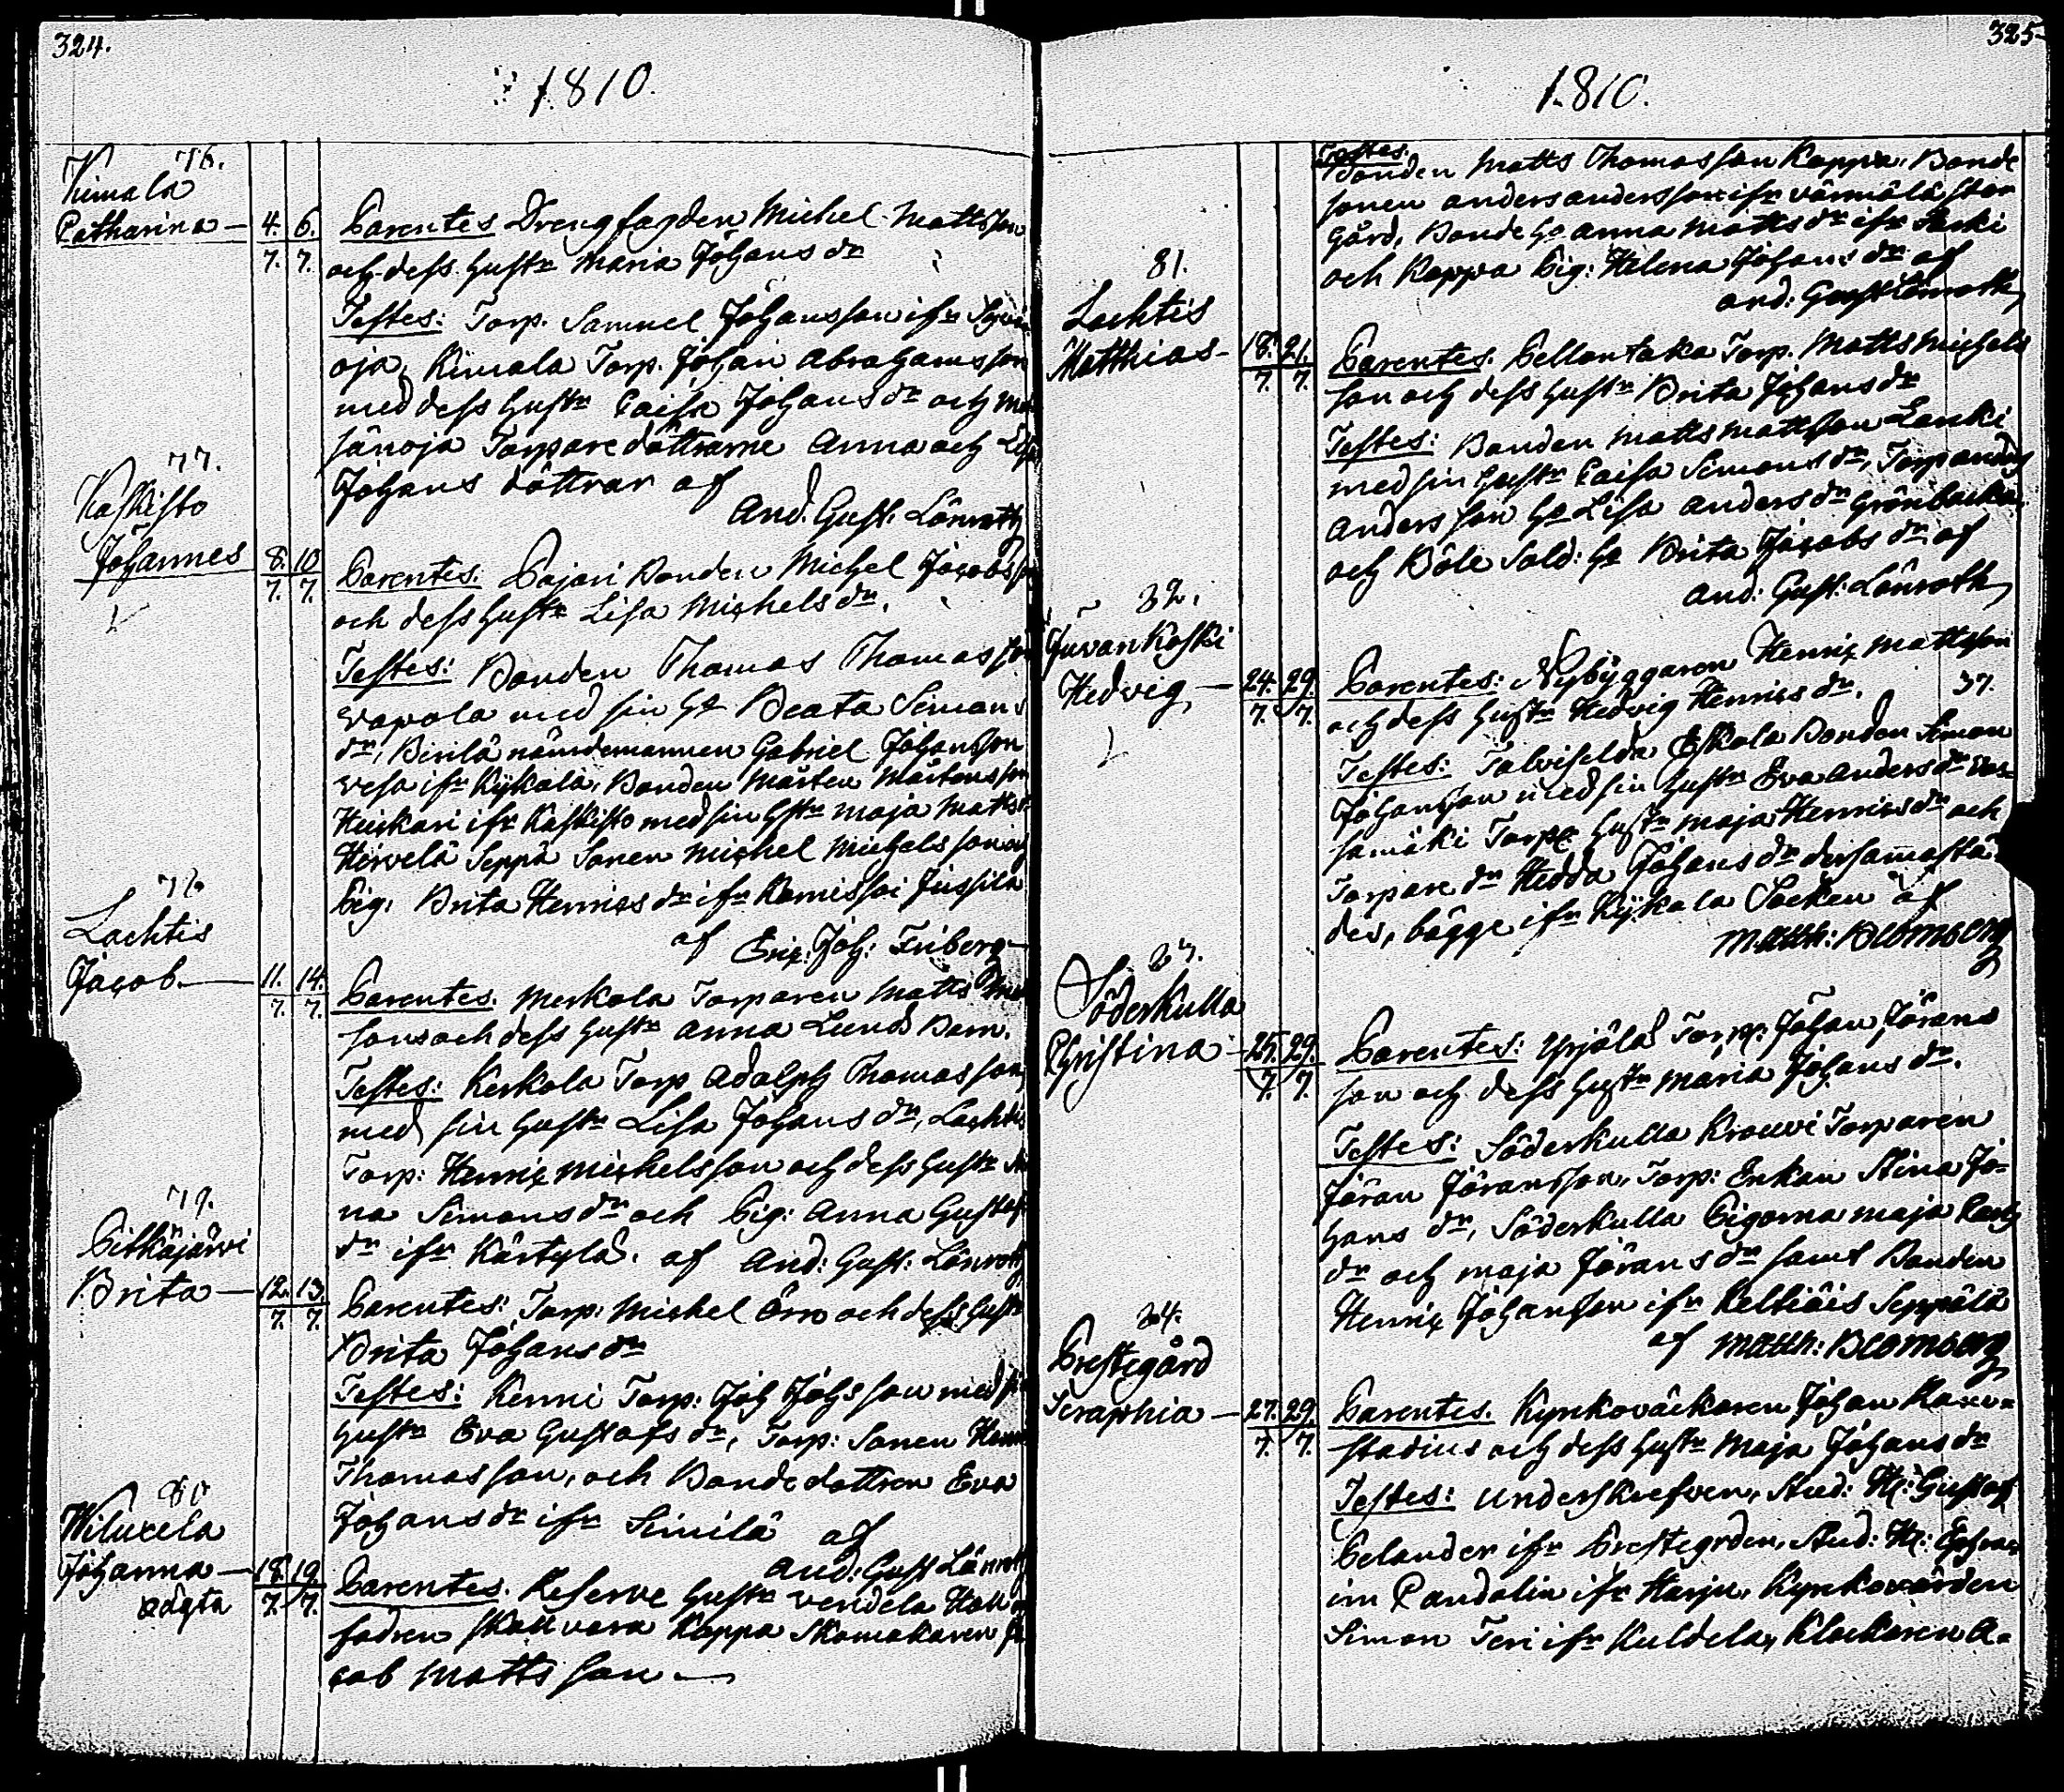 324.
1810.
76.
Kimala
Catharina — 4. 6. Parentes Drengfogden Michel Mattsson
7. 7. och dess hustr Maria Johans dr
Testes: Torp. Samuel Johansson ifr
oja, Kimala Torp. Johan Abrahamsson
med dess hustr Caisa Johans dr och
sänoja Torpare döttrarne Anna och Lisa
Johans döttrar af
And. Gust. Lönroth
77.
Kaskisto
Johannes 8. 10 Parentes. Pajari Bonden Michel Jacobsson
7. 7. och dess hustr Lisa Michels dr.
Testes: Bonden Thomas Thomasson
Wapola med sin h. Beata Simons
dr, Birilä nämdemannen Gabriel Johansson
vesa ifr Kÿkälä, Bonden Mårten Mårtensson
Heickari ifr Kaskisto med sin hstr Maja Matts
Hirvelä Seppä Sonen Michel Michelsson och
Pig. Brita Henrics dr ifr Jussila
af Eric Joh: Friberg
78
Lachtis
Jacob. — 11. 14. Parentes. Merkola Torparen Matts
7. 7. son och dess hustr Anna Lunds Barn.
Testes: Kerkola Torp Adolph Thomasson
med sin hustr Lisa Johans dr, Lachtis
Torp: Henric Michelsson och dess hustr An
na Simons dr och Pig: Anna Gustaf
dr ifr Kärtylä. af And: Gust: Lönroth
79.
Pitkäjärvi
Brita — 12. 13. Parentes: Torp: Michel Örn och dess hustr
7. 7. Brita Johans dr
Testes: Kenni Torp: Joh Johsson med sin
hustr Eva Gustafs dr, Torp: Sonen
Thomasson, och Bondedottren Eva
Johans dr ifr Similä af
And: Gust Lönroth
80
Wiluxela
Johanna — 18. 19 Parentes. Reserve hustr Vendela
oägta 7. 7. fadren skall vara Kappa Skomakaren Ja
cob Mattsson —
325
1810.
Testes.
Bonden Matts Thomasson Kappa, Bonde
sonen Anders Andersson ifr Vännälä stor
Gård, Bonde h. Anna Matts dr ifr
och Kappa Pig: Helena Johans dr af
And: Gust Lönroth
81.
Lachtis
Matthias — 18. 21. Parentes. Pellontaka Torp. Matts Michels
7. 7. son och dess hustr Brita Johans dr
Testes: Bonden Matts Mattsson Lanki
med sin hustr Caisa Simons dr, Torp Anders
Andersson h. Lisa Anders dr Grönbacka,
och Böle Sold: h. Brita Jacobs dr af
And: Gust: Lönroth
82.
Juvankoski
Hedvig — 24. 29. Parentes: Nybÿggaren Henric Mattsson
7. 7. och dess hustr Hedvig Henrics dr. 37.
Testes: Talviselda Eskola Bonden Simon
Johansson med sin hustr Eva Anders dr
samäki Torp hustr Maja Henrics dr och
Torpare dr Hedda Johans dr dersammastä
des, bägge ifr Kÿkala Socken af
Matth: Blomberg
83.
Söderkulla
Christina — 25. 29. Parentes: Yrjölä Torp: Johan Jörans
7. 7. son och dess hustr Maria Johans dr.
Testes: Söderkulla Krouvi Torparen
Jöran Jöransson, Torp: Enkan Stina Jo-
hans dr, Söderkulla Pigorna Maja
dr och Maja Jörans dr samt Bonden
Henric Johansson ifr Keltiäis Seppälä
af Matth: Blomberg
84.
Prestegård
Seraphia — 27. 29. Parentes. Kyrkoväckaren Johan
7. 7. stadius och dess hustr Maja Johans dr
Testes: Underskrefven, Stud: H: Gustaf
Pelander ifr Prestegrden, Stud: H: Ephra-
im Pandolin ifr Harju, Kyrkovärden
Simon Teri ifr Kuldela, Klockaren A-